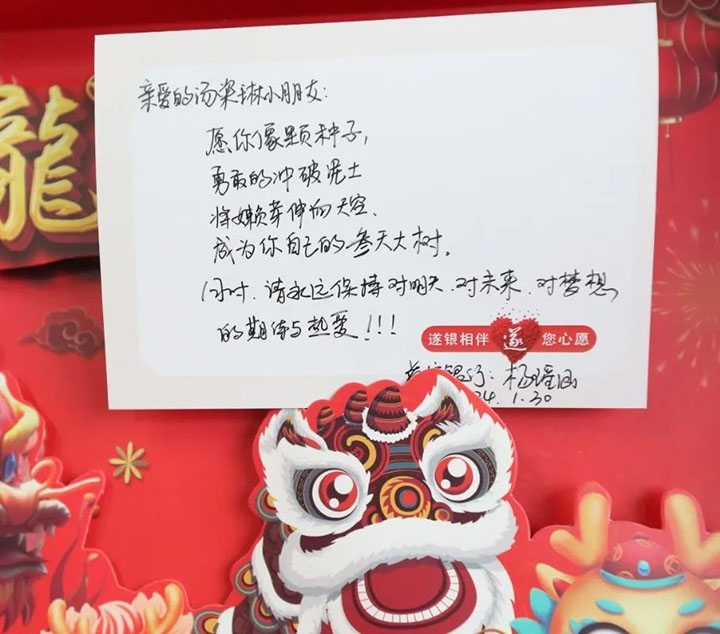 龍
亲爱的汤梁琳小朋友:
愿你像是颗种子,
勇敢的冲破泥土
将嫩芽伸向天空.
成为你自己的参天大树。
同时.请永远保持对明天.对未来.对梦想
的期待与热爱!!!
遂银相伴 遂 您心愿
银行:杨
24.1.30